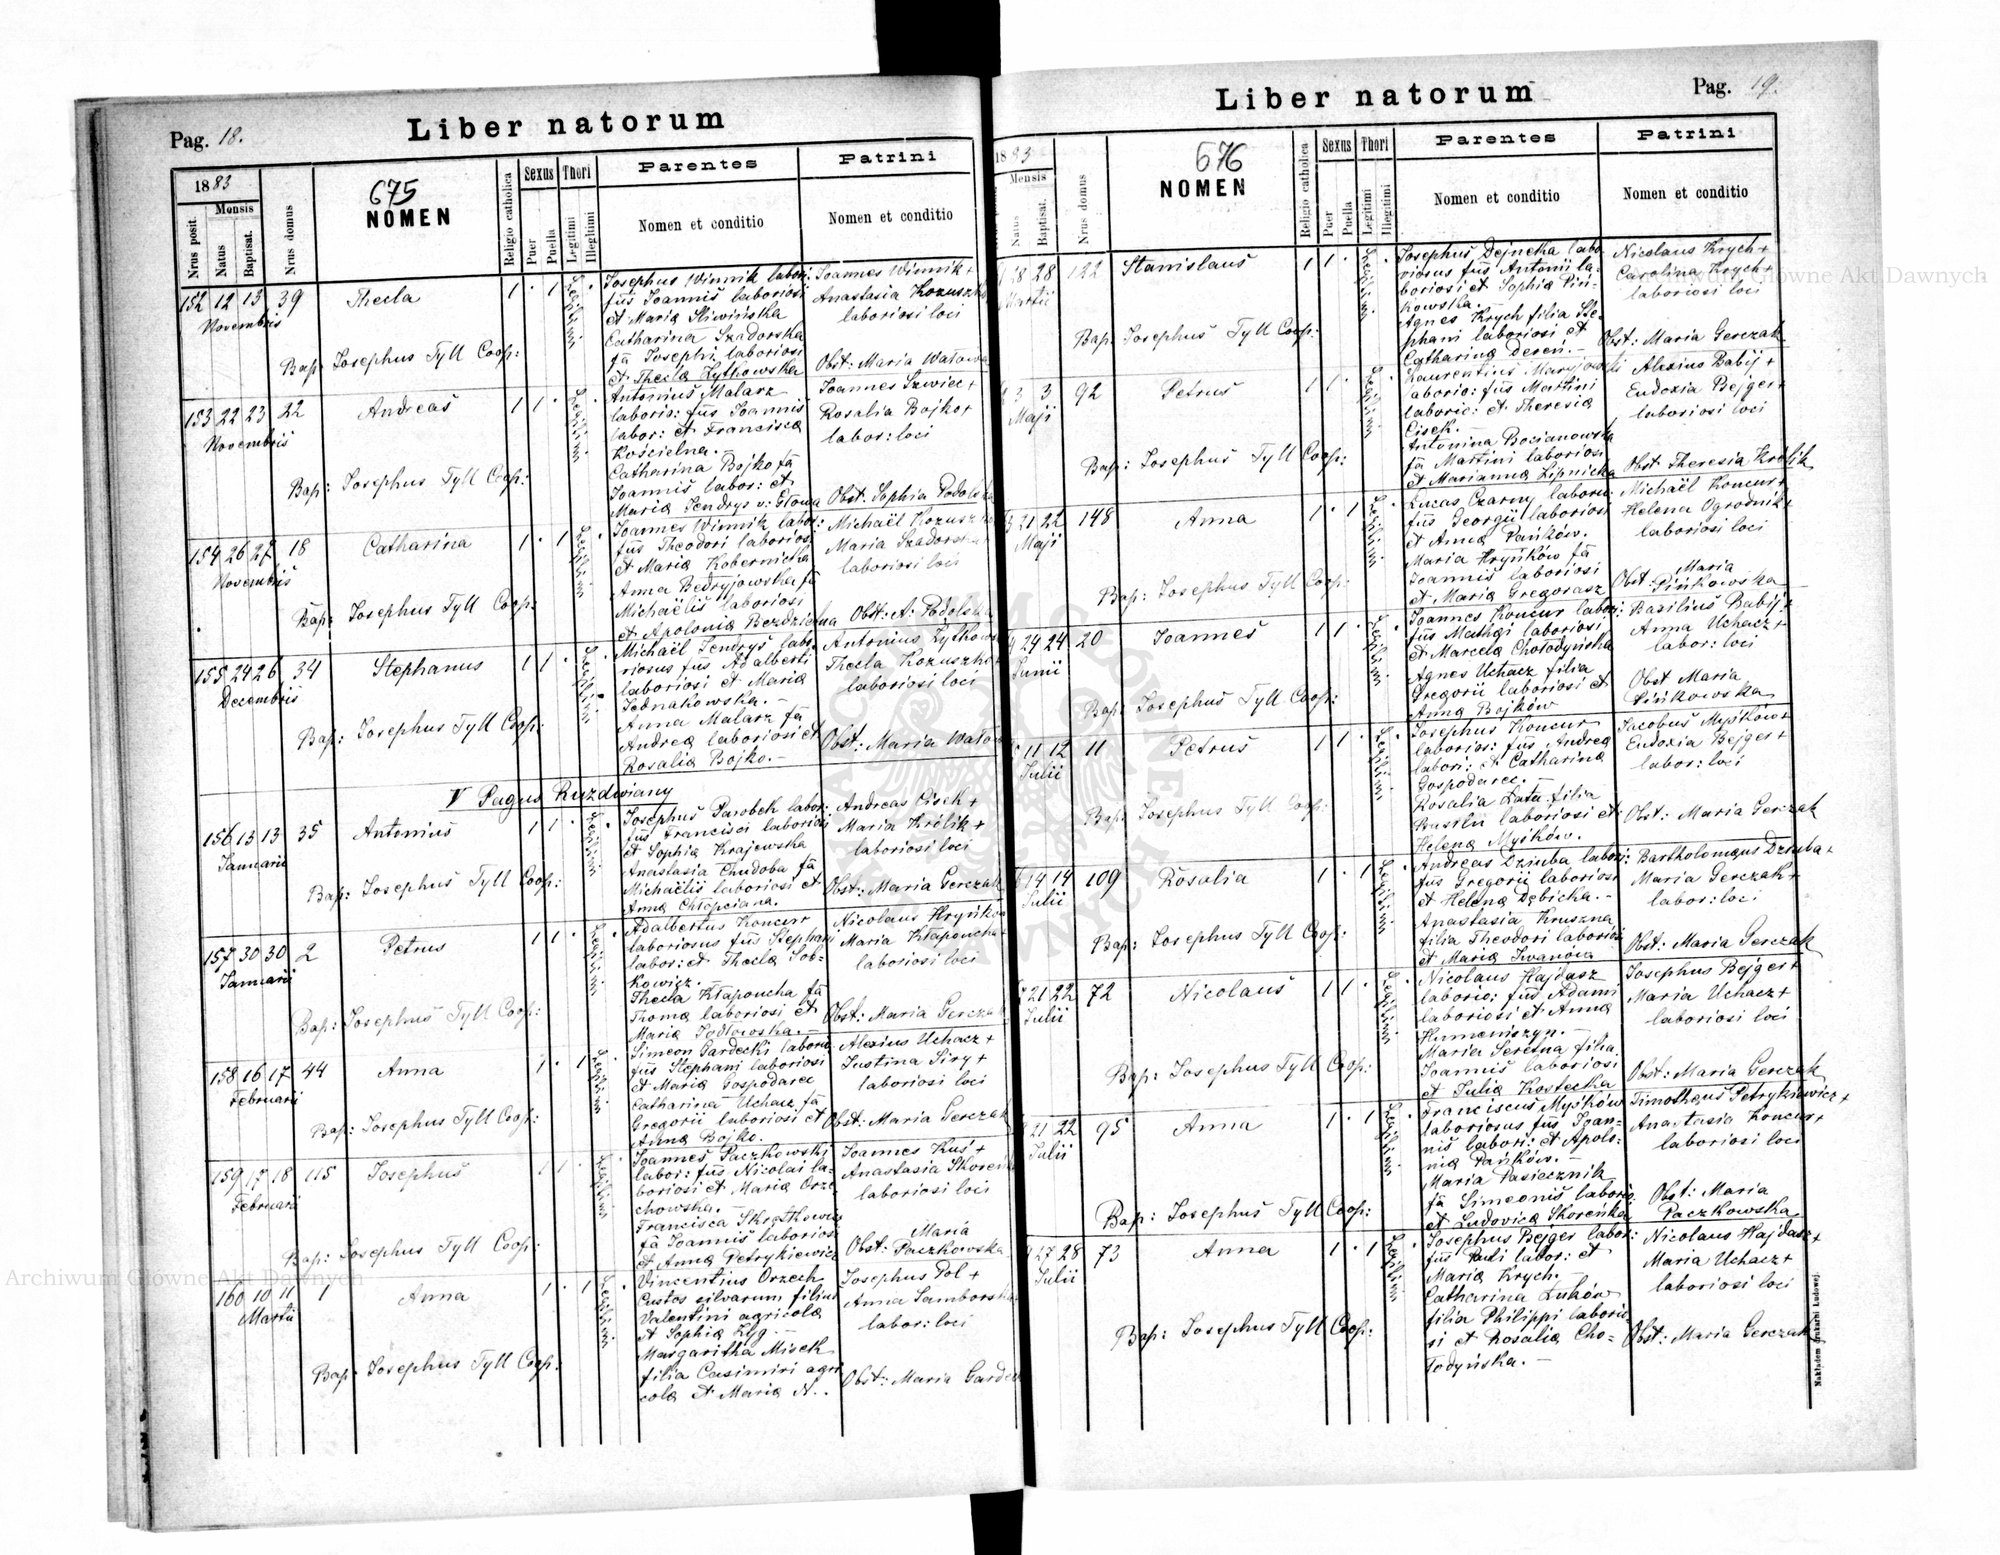 Pag. 18.
Liber natorum
1883
Mensis
Nrus posit.
Natus
Baptisat.
Nrus domus
675
NOMEN
Religio catholica
Sexus
Puer
Puella
Thori
Legitimi
Illegitimi
Parentes
Nomen et conditio
Patrini
Nomen et conditio
152 12 13 39 Thecla 1 · 1
Novembris
Josephus Winnik labor:
fũs Joannis laboriosi
et Maria Sliwińska
Catharina Szadorska
fa Josephi laboriosi
et Thecla Żytkowska
Joannes Winnik +
Anastasia Kozuszko
laboriosi loci
Obst: Maria Watowa
Bap: Josephus Tyll Coop:
153 22 23 22 Andreas 1 1 ·
Novembris
Antonius Malarz
laborio: fũs Joannis
labor: et Francisca
Kościelna.
Catharina Bojko fa
Joannis labor: et
Maria Jendrys v: Głowa
Joannes Szwiec +
Rosalia Bojko +
labor: loci
Obst: Sophia Podolska
Bap: Josephus Tyll Coop:
154 26 27 18 Catharina 1 · 1
Novembris
Joannes Winnik labor:
fũs Theodori laboriosi
et Maria Kobernicka
Anna Bedryjowska fa
Michaëlis laboriosi
et Apolonia Bezdzietna
Michaël Kozuszko
Maria Szadorska
laboriosi loci
Obst: A: Podolska
Bap: Josephus Tyll Coop:
155 24 26 34 Stephanus 1 1 ·
Decembris
Michaël Jendrys labo-
riosus fũs Adalberti
laboriosi et Maria
Jednakowska. —
Anna Malarz fa
Andrea laboriosi et
Rosalia Bojko. —
Antonius Żytkow
Thecla Kozuszko
laboriosi loci
Obst: Maria Watow
Bap: Josephus Tyll Coop:
V Pagus Ruzdwiany
156 13 13 35 Antonius 1 1 ·
Januarii
Josephus Parobek labor:
fũs Francisci laboriosi
et Sophia Krajewska
Anastasia Chudoba fa
Michaëlis laboriosi et
Anna Chłopciana.
Andreas Cisek +
Maria Królik +
laboriosi loci
Obst: Maria Gerczak
Bap: Josephus Tyll Coop:
157 30 30 2 Petrus 1 1 ·
Januarii
Adalbertus Koncur
laboriosus fũs Stephani
labor: et Thecla Sob-
kowicz.
Thecla Kłapoucha fa
Thoma laboriosi et
Maria Jodłowska. —
Nicolaus Hryńków
Maria Kłapoucha +
laboriosi loci
Obst: Maria Gerczak
Bap: Josephus Tyll Coop:
158 16 17 44 Anna 1 · 1
Februarii
Simeon Gardecki laborio
fũs Stephani laboriosi
et Maria Gospodarec
Catharina Uchacz fa
Gregorii laboriosi et
Anna Bojko.
Alexius Uchacz +
Justina Siry +
laboriosi loci
Obst: Maria Gerczak
Bap: Josephus Tyll Coop:
159 17 18 115 Josephus 1 1 ·
Februarii
Joannes Paczkowski
labor: fũs Nicolai la-
boriosi et Maria Orze
chowska. —
Francisca Skrętkowicz
fa Joannis laboriosi
et Anna Petrykiewicz
Joannes Kuś +
Anastasia Skoreńka
laboriosi loci
Obst: Maria
Paczkowska
Bap: Josephus Tyll Coop:
160 10 11 1 Anna 1 · 1
Martii
Vincentius Orzech
Custos silvarum filius
Valentini agricola
et Sophia Zyg. —
Margaritha Misek
filia Casimiri agri
cola et Maria N. .
Josephus Pol +
Anna Samborska
labor: loci
Obst: Maria Gardec
Bap: Josephus Tyll Coop:
Pag. 19.
Liber natorum
1883
Mensis
Natus
Baptisat.
Nrus domus
676
NOMEN
Religio catholica
Sexus
Puer
Puella
Thori
Legitimi
Illegitimi
Parentes
Nomen et conditio
Patrini
Nomen et conditio
28 28 122 Stanislaus 1 1 ·
Martii
Josephus Dejneka labo-
riosus fũs Antonii la-
boriosi et Sophia Piń-
kowska. —
Agnes Krych filia Ste-
phani laboriosi et
Catharina Dereń. —
Nicolaus Krych +
Carolina Krych +
laboriosi loci
Obst: Maria Gerczak
Bap: Josephus Tyll Coop:
3 3 92 Petrus 1 1 ·
Maji
Laurentius Maryjowski
laborio: fũs Martini
laborio: et Theresia
Cisek. —
Antonina Bocianowska
fa Martini laboriosi
et Marianna Lipnicka
Alexius Babij +
Eudoxia Bejger +
laboriosi loci
Obst: Theresia Królik
Bap: Josephus Tyll Coop:
21 22 148 Anna 1 · 1
Maji
Lucas Czarny laborio:
fũs Georgii laboriosi
et Anna Pańków.
Maria Hryńków fa
Joannis laboriosi
et Maria Gregorasz
Michaël Koncur +
Helena Ogrodnik +
laboriosi loci
Obst: Maria
Pińkowska
Bap: Josephus Tyll Coop:
24 24 20 Joannes 1 1 ·
Junii
Joannes Koncur labori:
fũs Mathai laboriosi
et Marcela Chołodyńska
Agnes Uchacz filia
Gregorii laboriosi et
Anna Bojków
Basilius Babij +
Anna Uchacz +
labor: loci
Obst Maria
Pińkowska
Bap: Josephus Tyll Coop:
11 12 11 Petrus 1 1 ·
Julii
Josephus Koncur
laborios: fũs Andrea
labori: et Catharina
Gospodarec. —
Rosalia Łata filia
Basilii laboriosi et
Helena Myśków.
Jacobus Myśków +
Eudoxia Bejger +
labor: loci
Obst: Maria Gerczak
Bap: Josephus Tyll Coop:
14 14 109 Rosalia 1 · 1
Julii
Andreas Dziuba labori:
fũs Gregorii laboriosi
et Helena Dębicka. —
Anastasia Kruszna
filia Theodori laboriosi
et Maria Iwanova
Bartholomaus Dziuba +
Maria Gerczak +
labor: loci
Obst: Maria Gerczak
Bap: Josephus Tyll Coop:
21 22 72 Nicolaus 1 1 ·
Julii
Nicolaus Hajdasz
laborio: fũs Adami
laboriosi et Anna
Humeniszyn. —
Maria Seretna filia
Joannis laboriosi
et Julia Kostecka
Josephus Bejger +
Maria Uchacz +
laboriosi loci
Obst: Maria Gerczak
Bap: Josephus Tyll Coop:
21 22 95 Anna 1 · 1
Julii
Franciscus Myśków
laboriosus fũs Joan-
nis labori: et Apolo-
nia Pańków. —
Maria Pasiecznik
fa Simeonis laborio:
et Ludovica Skoreńka
Timotheus Petrykiewicz +
Anastasia Koncur +
laboriosi loci
Obst: Maria
Paczkowska
Bap: Josephus Tyll Coop:
27 28 73 Anna 1 · 1
Julii
Josephus Bejger labor:
fũs Pauli labor: et
Maria Krych. —
Catharina Łuków
filia Philippi laborio-
si et Rosalia Cho-
łodyńska. —
Nicolaus Hajdasz +
Maria Uchacz +
laboriosi loci
Obst: Maria Gerczak
Bap: Josephus Tyll Coop:
Nakładem drukarni Ludowej.
Archiwum Główne Akt Dawnych
Archiwum Główne Akt Dawnych